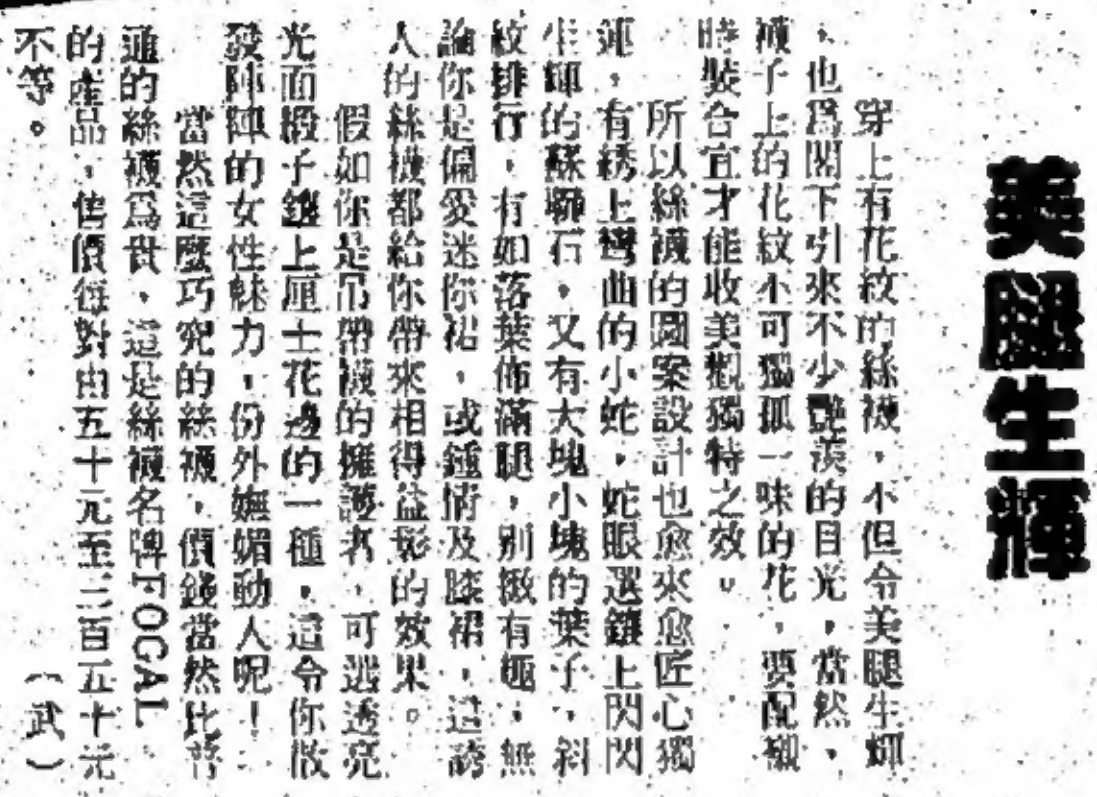 美腿生輝
穿上有花紋的絲襪，不但令美腿生輝
，也爲閣下引來不少艷羨的目光，當然，
襪子上的花紋不可獨孤一味的花，要配襯
時裝合宜才能收美觀獨特之效。
所以絲襪的圖案設計也愈來愈匠心獨
運，有綉上彎曲的小蛇，蛇眼還鑲上閃閃
生輝的蘇聯石，又有大塊小塊的葉子，斜
紋排行，有如落葉佈滿腿，別緻有趣，無
論你是偏愛迷你裙，或鍾情及膝裙，這誘
人的絲襪都給你帶來相得益彰的效果。
假如你是吊帶襪的擁護者，可選透亮
光面緞子鑲上厘士花邊的一種，這令你散
發陣陣的女性魅力，份外嫵媚動人呢！
當然這麼巧究的絲襪，價錢當然比普
通的絲襪爲貴，這是絲襪名牌FOGAL
的產品，售價每對由五十元至三百五十元
不等。（武）